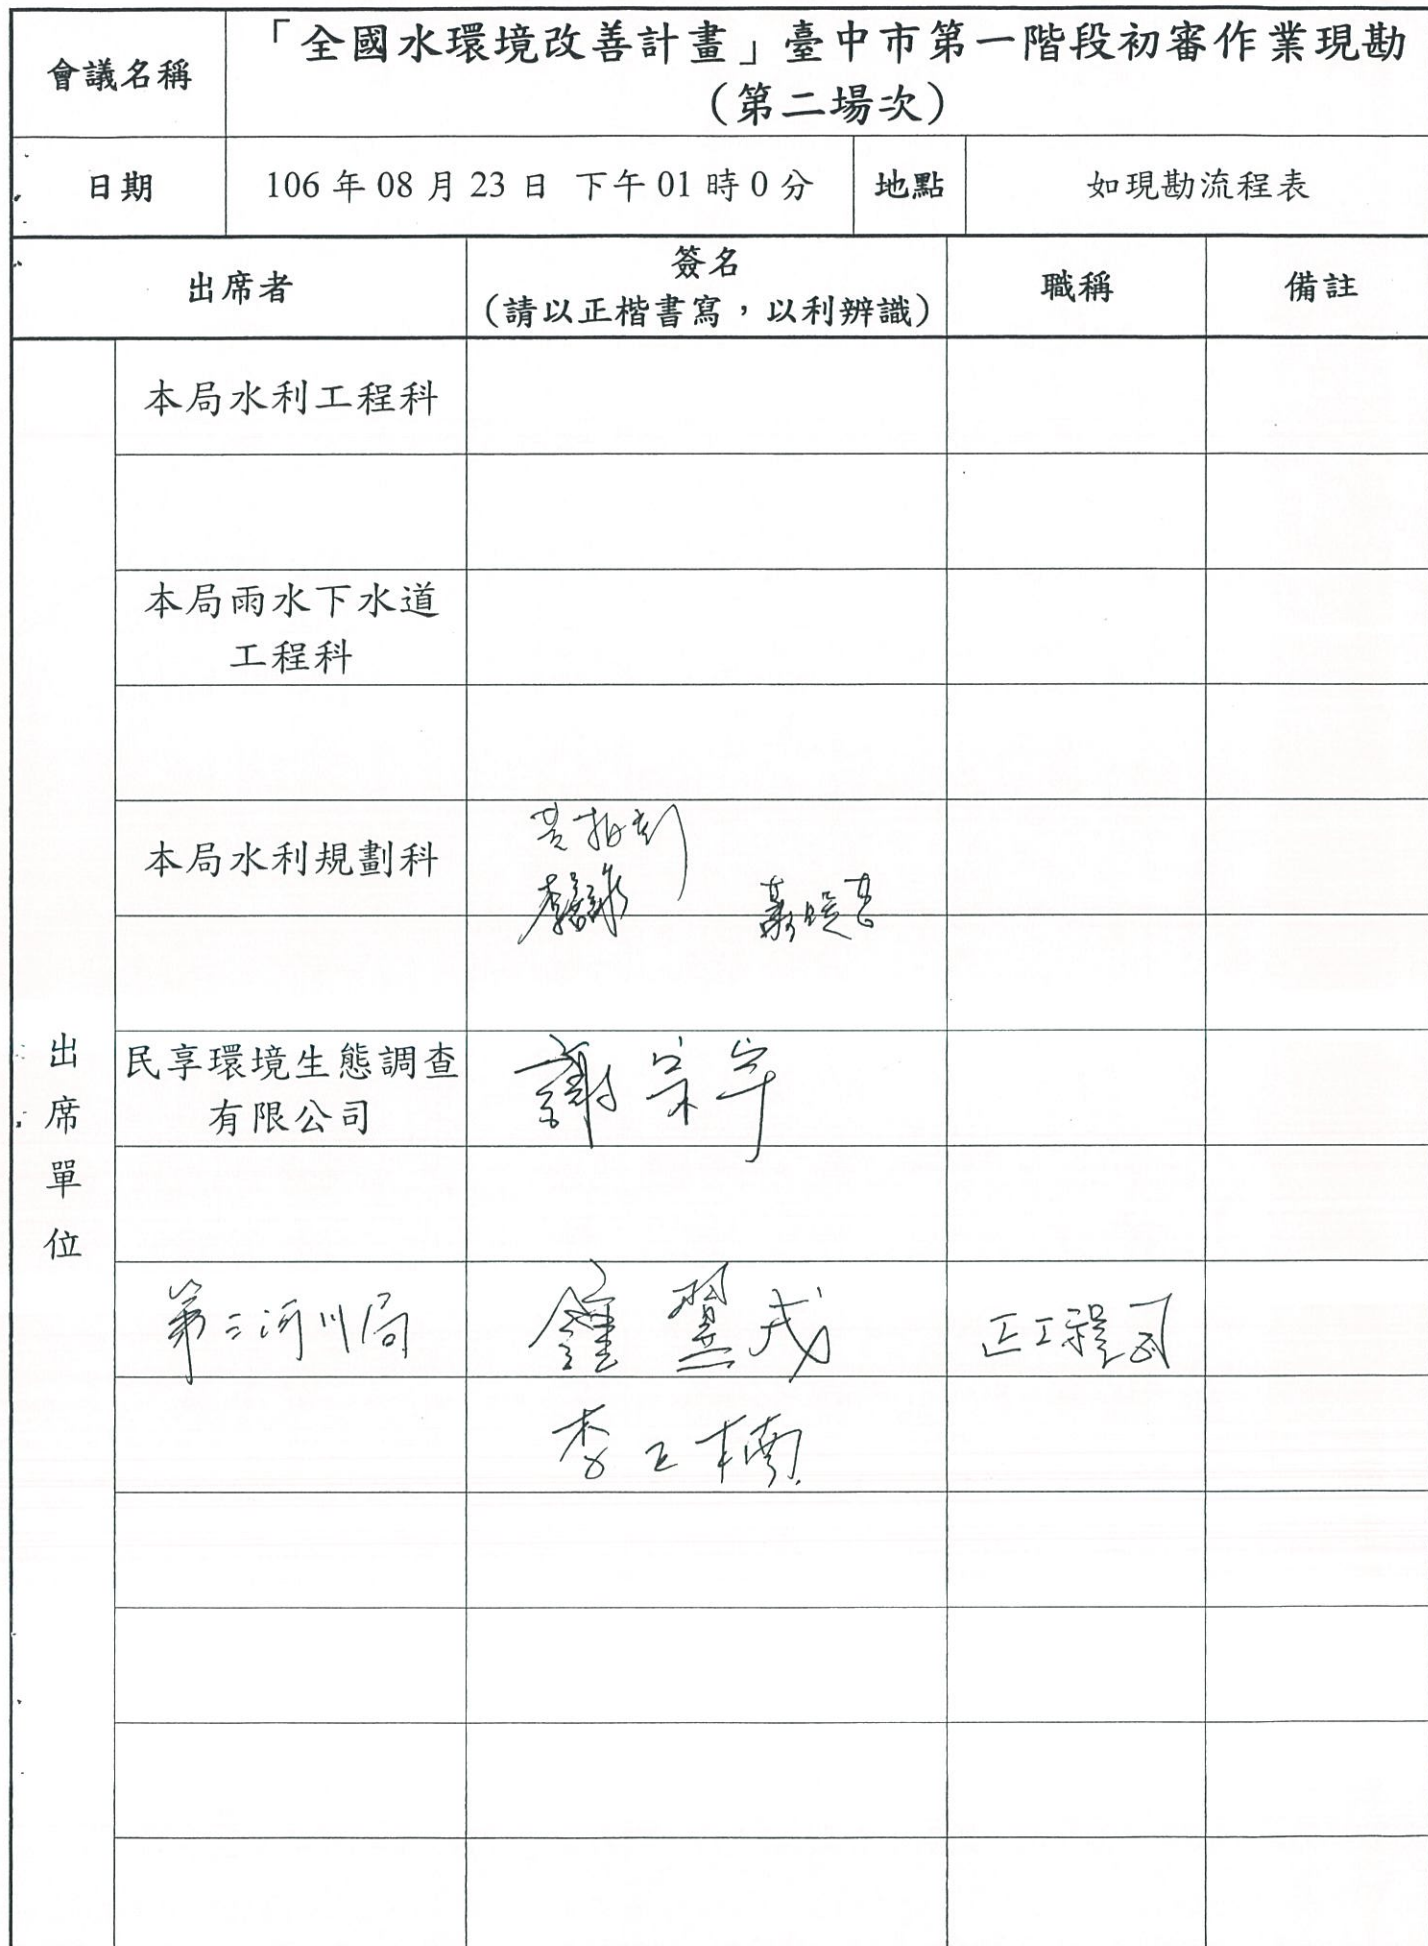 會議名稱
「全國水環境改善計畫」臺中市第一階段初審作業現勘
(第二場次)
日期
106 年 08 月 23 日 下午 01 時 0 分
地點
如現勘流程表
出席者
簽名
(請以正楷書寫,以利辨識)
職稱
備註
出席單位
本局水利工程科
本局雨水下水道
工程科
本局水利規劃科
民享環境生態調查
有限公司
謝宗宇
第三河川局
鐘翼戎
正工程司
李正楠